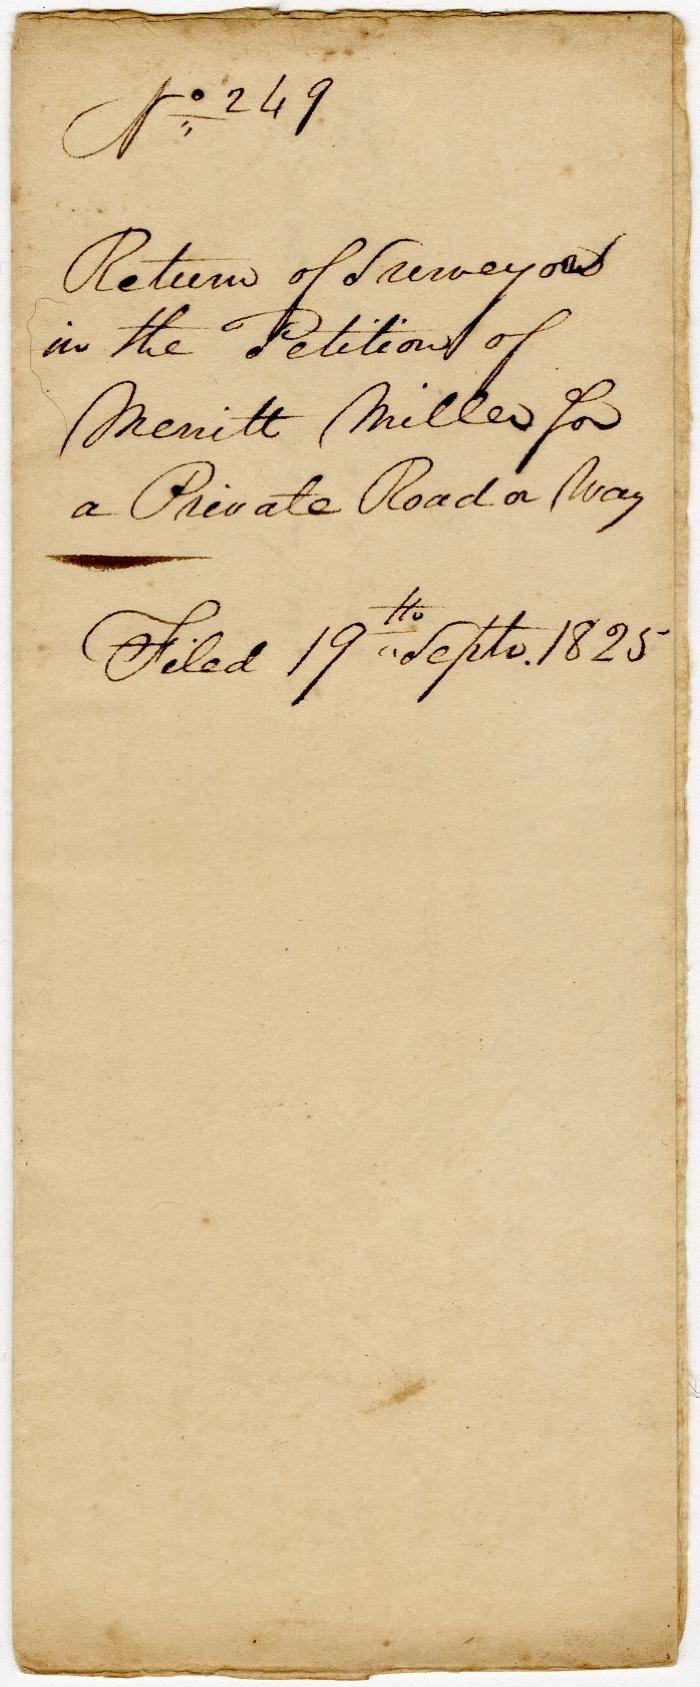 No 249
Return of Surveyors
in the Petition of
Merritt Miller for
a Private Road or Way
Filed 19th Septr. 1825